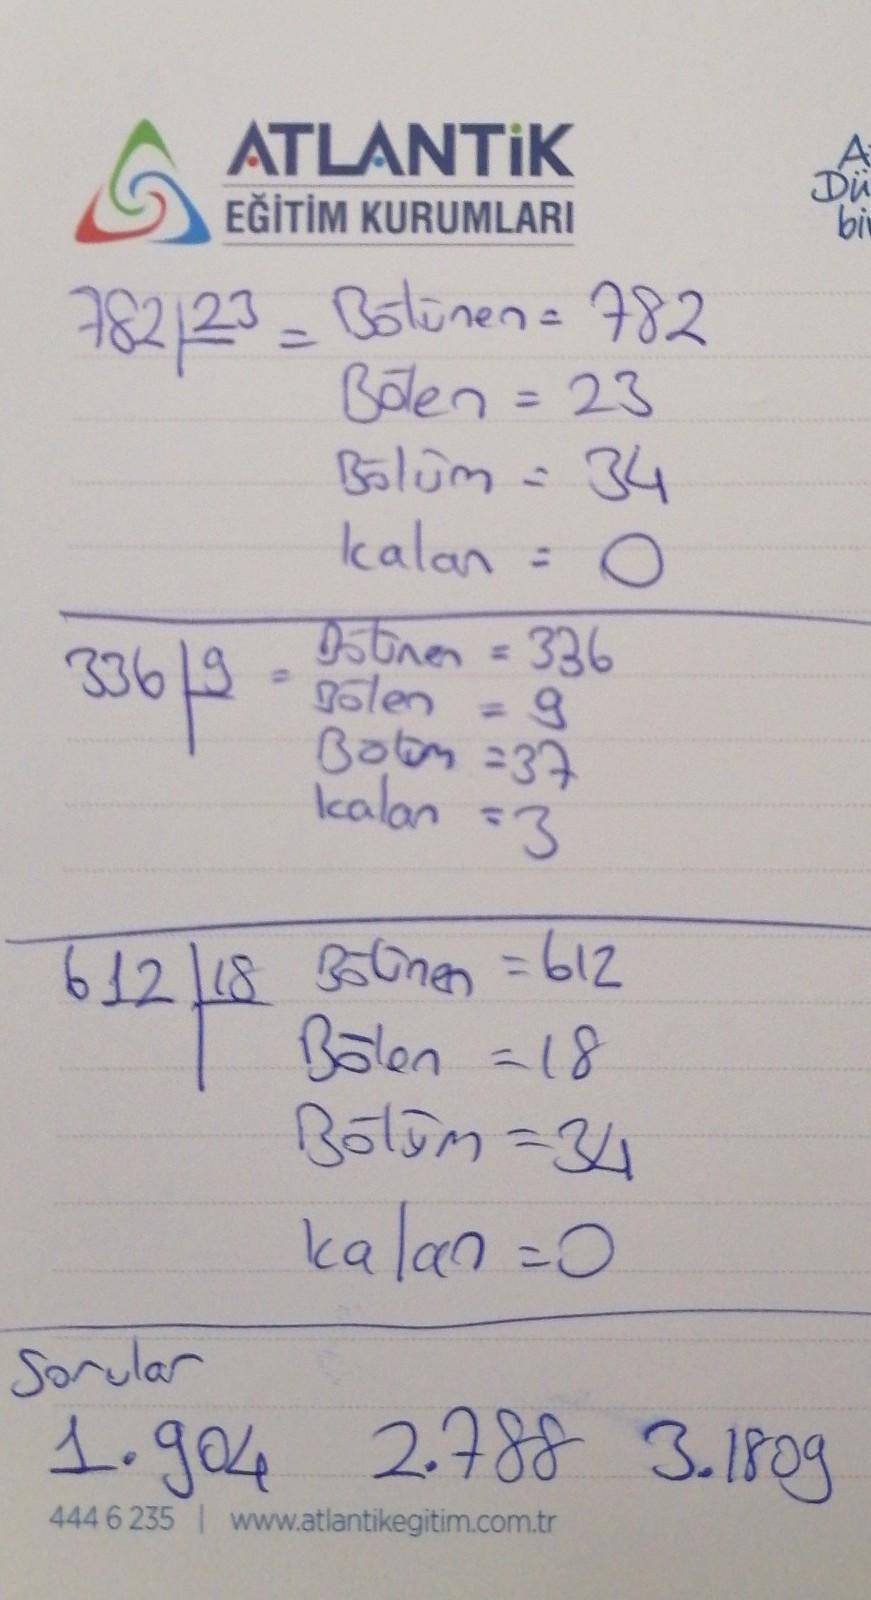 ATLANTiK
EĞİTİM KURUMLARI
A
Dü
bi
782 23 = Bölünen = 782
Bölen = 23
Bölüm = 34
Kalan = 0
336 9 = Bölünen = 336
Bölen = 9
Bölüm = 37
Kalan = 3
612 18 Bölünen = 612
Bölen = 18
Bölüm = 34
Kalan = 0
Sorular
1.904 2.788 3.1809
444 6 235 | www.atlantikegitim.com.tr